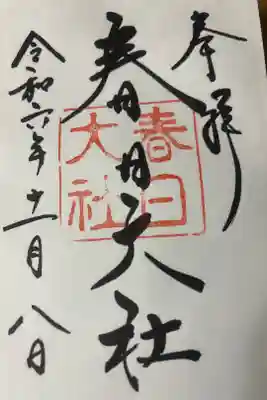 奉拝
春日大社
春日
大社
令和六年十一月八日